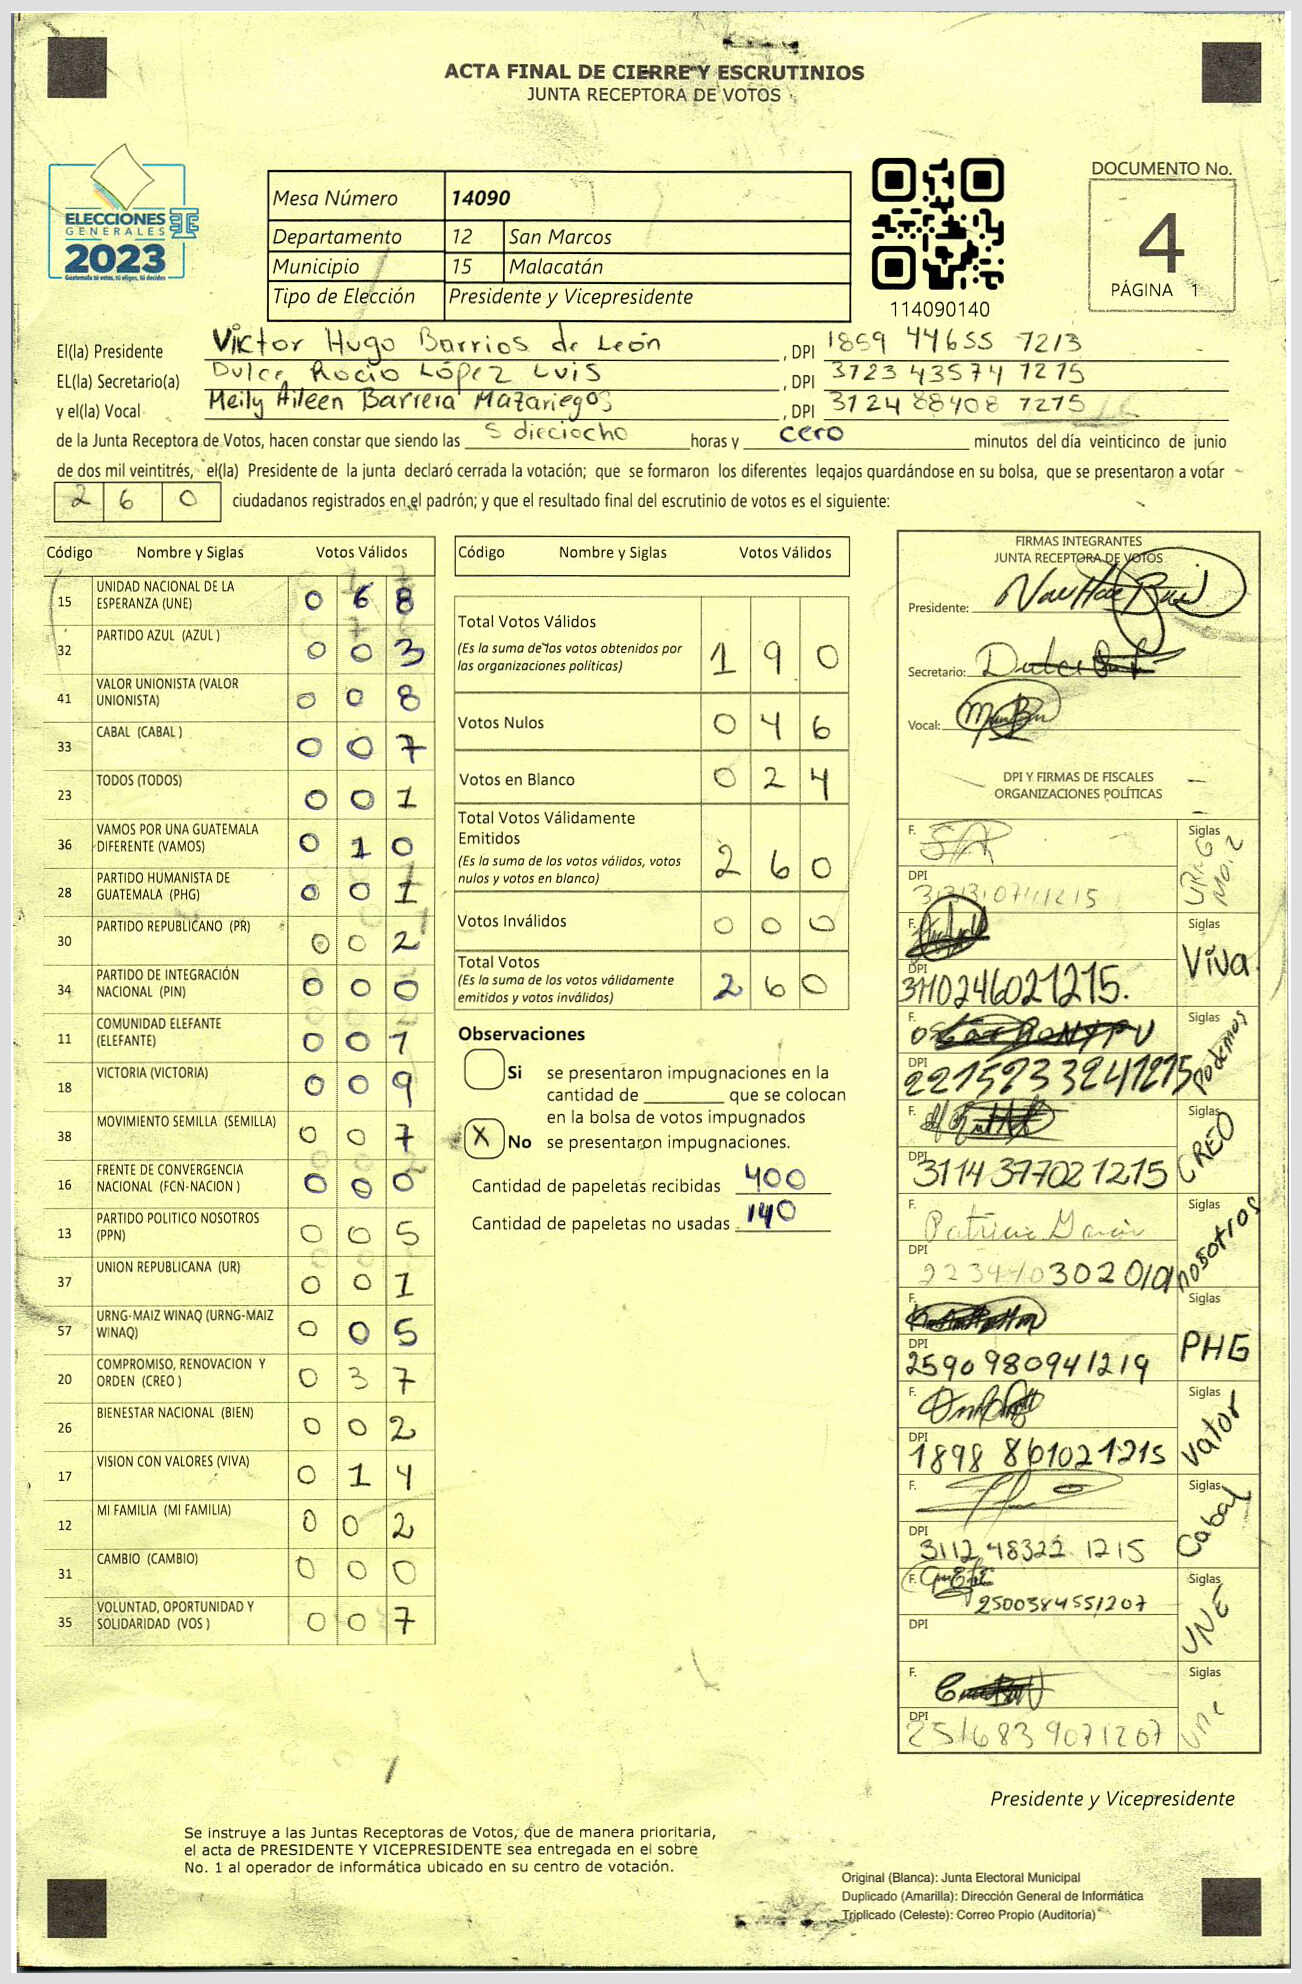 ACTA FINAL DE CIERRE Y ESCRUTINIOS
JUNTA RECEPTORA DE VOTOS
ELECCIONES
GENERALES
2023
Guatemala tú votas, tú eliges, tú decides
Mesa Número 14090
Departamento 12 San Marcos
Municipio 15 Malacatán
Tipo de Elección Presidente y Vicepresidente
114090140
DOCUMENTO No.
4
PÁGINA 1
El(la) Presidente Victor Hugo Barrios de León , DPI 1859 44655 7213
EL(la) Secretario(a) Dulce Rocio López Luis , DPI 3723 43574 1275
y el(la) Vocal Meily Aileen Barrera Mazariegos , DPI 3124 88408 7275
de la Junta Receptora de Votos, hacen constar que siendo las dieciocho horas y cero minutos del día veinticinco de junio
de dos mil veintitrés, el(la) Presidente de la junta declaró cerrada la votación; que se formaron los diferentes legajos guardándose en su bolsa, que se presentaron a votar
2 6 0 ciudadanos registrados en el padrón; y que el resultado final del escrutinio de votos es el siguiente:
Código Nombre y Siglas Votos Válidos
15 UNIDAD NACIONAL DE LA ESPERANZA (UNE) 0 6 8
32 PARTIDO AZUL (AZUL ) 0 0 3
41 VALOR UNIONISTA (VALOR UNIONISTA) 0 0 8
33 CABAL (CABAL ) 0 0 7
23 TODOS (TODOS) 0 0 1
36 VAMOS POR UNA GUATEMALA DIFERENTE (VAMOS) 0 1 0
28 PARTIDO HUMANISTA DE GUATEMALA (PHG) 0 0 1
30 PARTIDO REPUBLICANO (PR) 0 0 2
34 PARTIDO DE INTEGRACIÓN NACIONAL (PIN) 0 0 0
11 COMUNIDAD ELEFANTE (ELEFANTE) 0 0 1
18 VICTORIA (VICTORIA) 0 0 9
38 MOVIMIENTO SEMILLA (SEMILLA) 0 0 7
16 FRENTE DE CONVERGENCIA NACIONAL (FCN-NACION ) 0 0 0
13 PARTIDO POLITICO NOSOTROS (PPN) 0 0 5
37 UNION REPUBLICANA (UR) 0 0 1
57 URNG-MAIZ WINAQ (URNG-MAIZ WINAQ) 0 0 5
20 COMPROMISO, RENOVACION Y ORDEN (CREO ) 0 3 7
26 BIENESTAR NACIONAL (BIEN) 0 0 2
17 VISION CON VALORES (VIVA) 0 1 4
12 MI FAMILIA (MI FAMILIA) 0 0 2
31 CAMBIO (CAMBIO) 0 0 0
35 VOLUNTAD, OPORTUNIDAD Y SOLIDARIDAD (VOS ) 0 0 7
Código Nombre y Siglas Votos Válidos
Total Votos Válidos
(Es la suma de los votos obtenidos por
las organizaciones politicas) 1 9 0
Votos Nulos 0 4 6
Votos en Blanco 0 2 4
Total Votos Válidamente
Emitidos
(Es la suma de los votos válidos, votos
nulos y votos en blanco) 2 6 0
Votos Inválidos 0 0 0
Total Votos
(Es la suma de los votos válidamente
emitidos y votos inválidos) 2 6 0
Observaciones
Si se presentaron impugnaciones en la
cantidad de ________ que se colocan
en la bolsa de votos impugnados
X No se presentaron impugnaciones.
Cantidad de papeletas recibidas 400
Cantidad de papeletas no usadas 140
FIRMAS INTEGRANTES
JUNTA RECEPTORA DE VOTOS
Presidente:
Secretario: Dulce
Vocal:
DPI Y FIRMAS DE FISCALES
ORGANIZACIONES POLÍTICAS
F. Siglas URNG Maiz
DPI
F. Siglas Viva
DPI 3110246021215.
F. Siglas Podemos
DPI 2215233241215
F. Siglas CREO
DPI 3114377021215
F. Patricia Garcia Siglas nosotros
DPI
F. Siglas PHG
DPI 2590980941219
F. Siglas Valor
DPI 1898 861021215
F. Siglas Cabal
DPI 3112 48322 1215
F. Siglas UNE
2500384551207
DPI
F. Siglas une
DPI 2516839071207
Presidente y Vicepresidente
Se instruye a las Juntas Receptoras de Votos, que de manera prioritaria,
el acta de PRESIDENTE Y VICEPRESIDENTE sea entregada en el sobre
No. 1 al operador de informática ubicado en su centro de votación.
Original (Blanca): Junta Electoral Municipal
Duplicado (Amarilla): Dirección General de Informática
Triplicado (Celeste): Correo Propio (Auditoria)